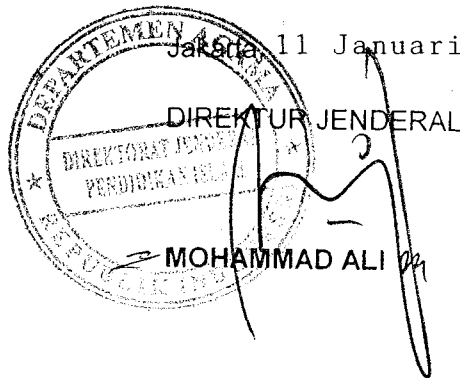 Jakarta, 11 Januari
DIREKTUR JENDERAL
MOHAMMAD ALI
DEPARTEMEN AGAMA
DIREKTORAT JENDERAL
PENDIDIKAN ISLAM
REPUBLIK INDONESIA